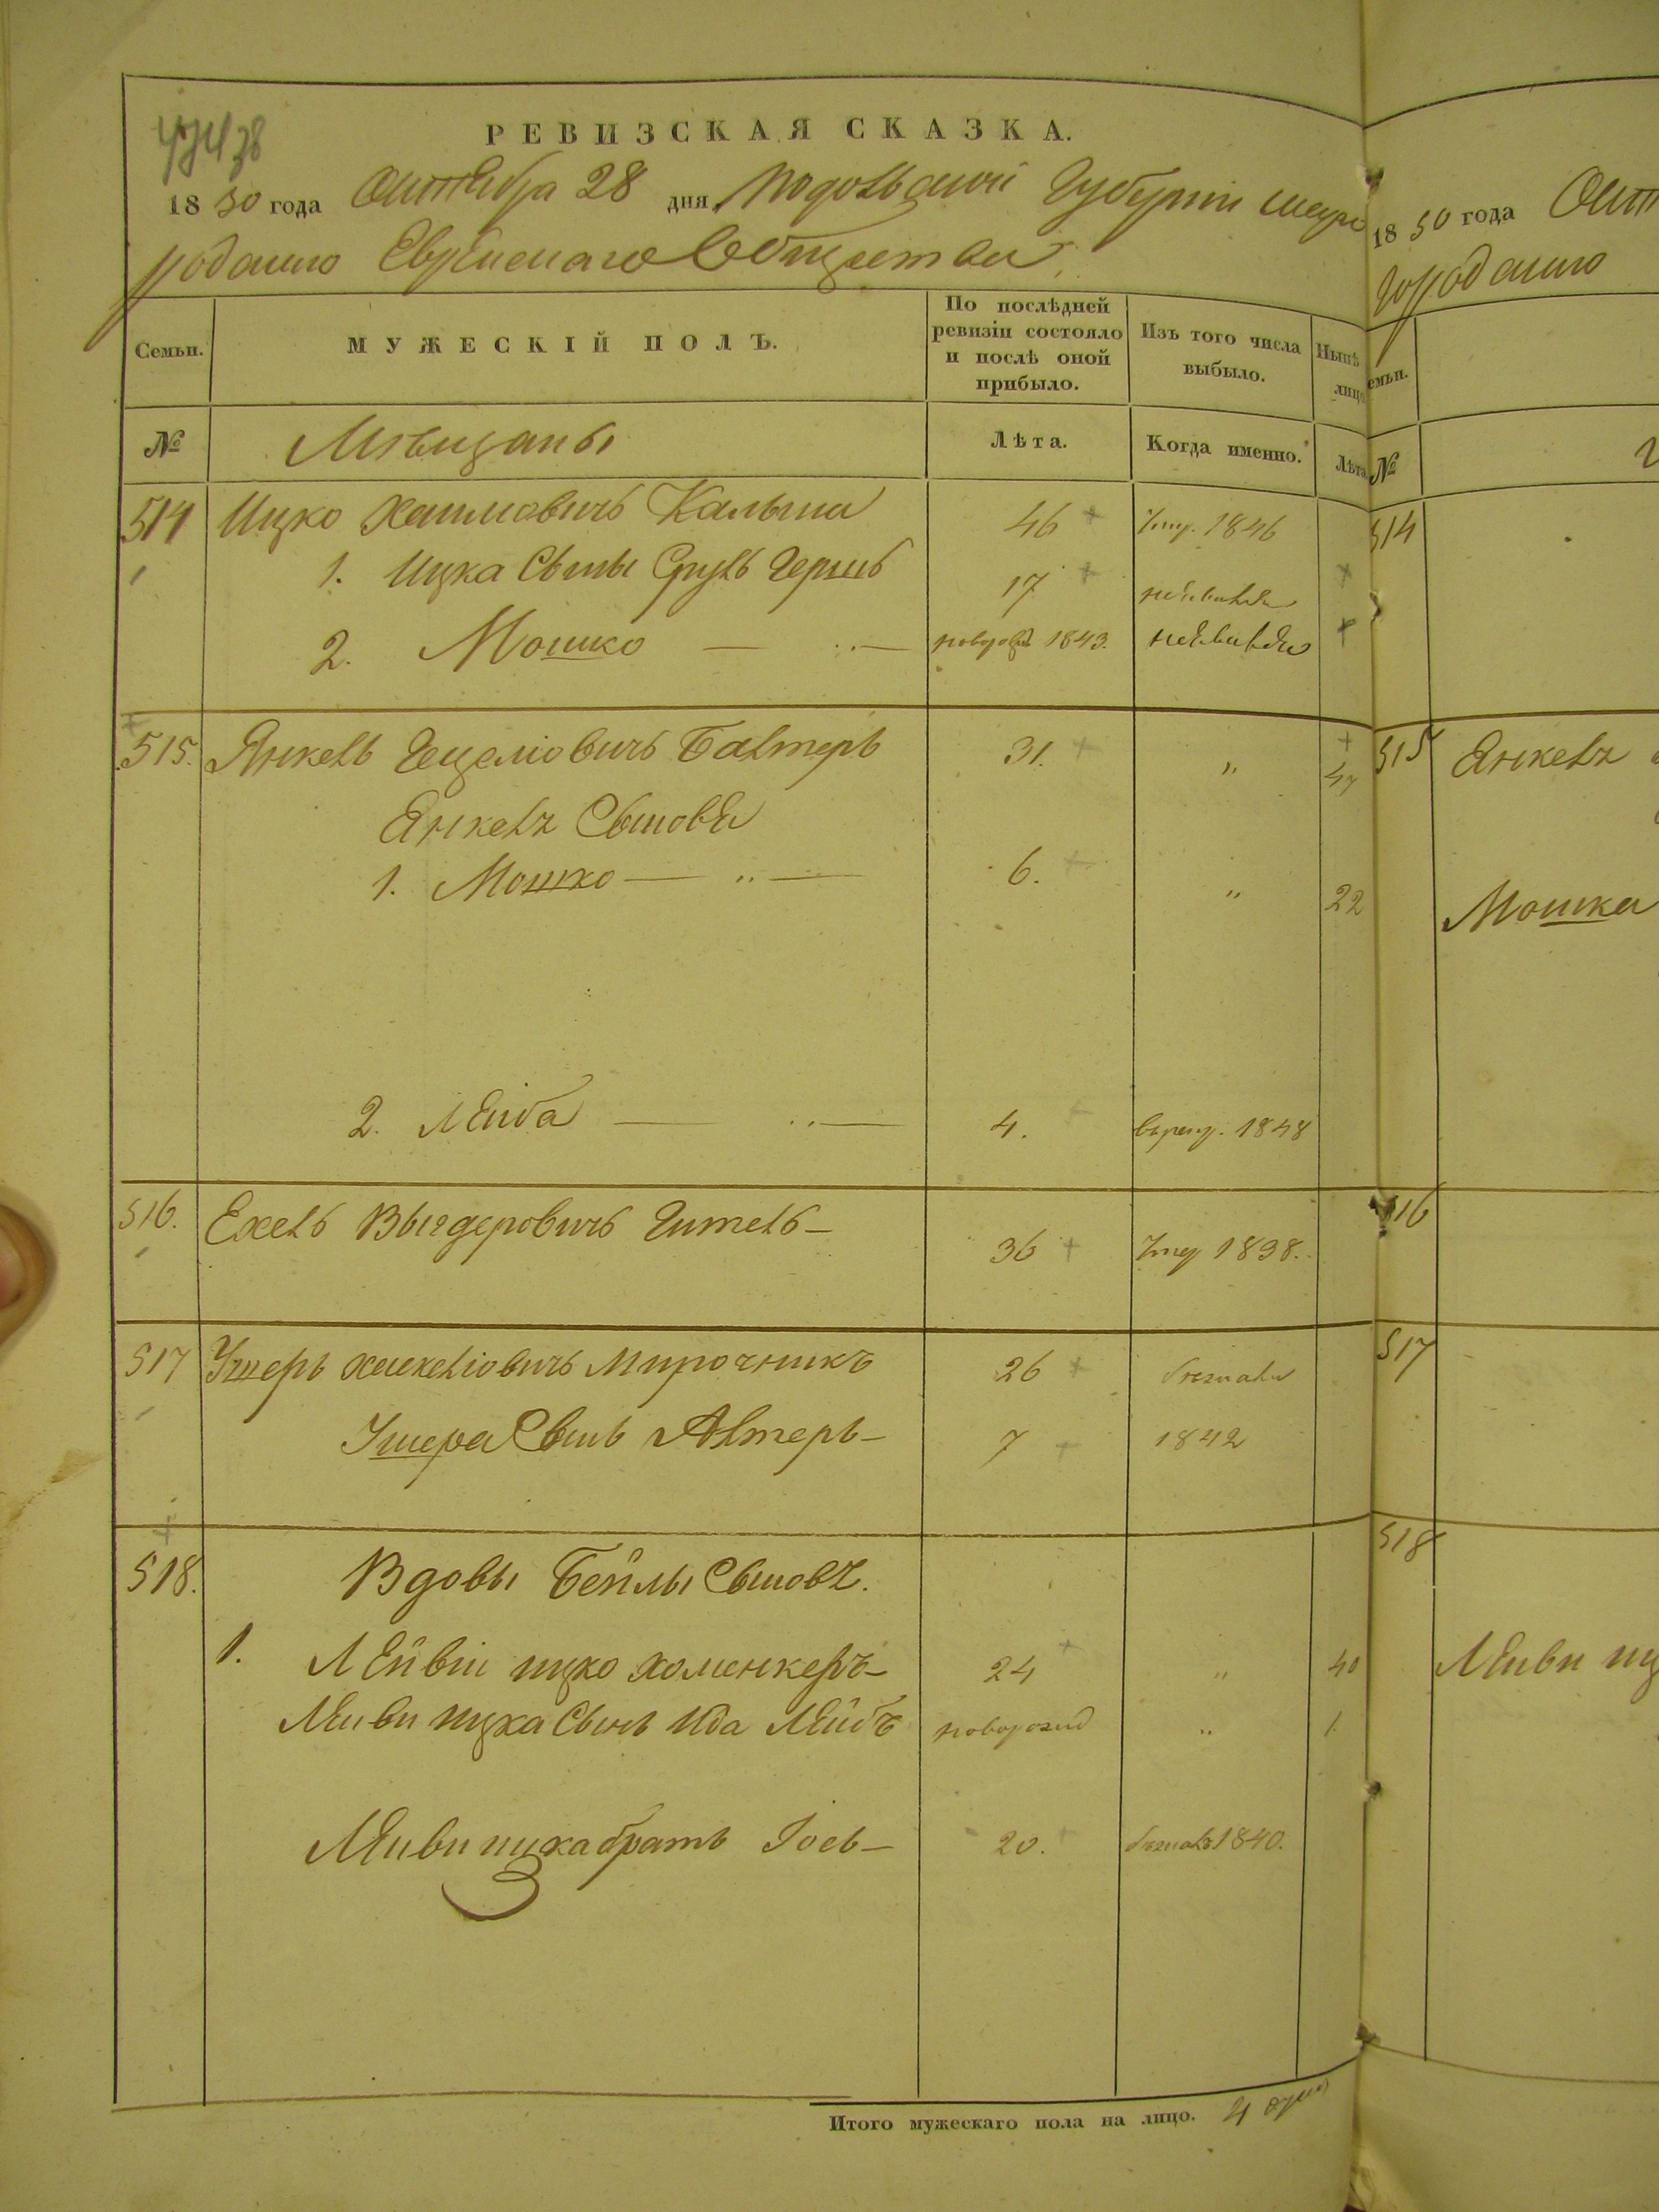 РЕВИЗСКАЯ СКАЗКА.
1850 года Октября 28 дня Подольской Губерніи Шаро
родского Еврейскаго Общества
Семьи.
МУЖЕСКІЙ ПОЛЪ.
По послѣдней
ревизіи состояло
и послѣ оной
прибыло.
Изъ того числа
выбыло.
Нынѣ
лицо
№
Мѣщаны
Лѣта.
Когда именно.
Лѣта
514 Ицко Хаимовичъ 46 + Умр. 1846
1. Ицка Сыны Сруль Гершъ 17 +
2. Мошко — „ — новорожд 1843.
515. Янкель Бальтеръ 31. + „ 47
Янкеля Сыновья
1. Мошко — „ — 6. + „ 22
2. Лейба — „ — 4. 1848
516. Гитель — 36 + Умер 1838.
517 Ушеръ Мирочникъ 26 +
Ушера Сынъ Альтеръ — 7 1842
518. Вдовы Бейлы Сыновя.
1. Лейви ицко Хоменкеръ — 24 + „ 40
Лейви ицка Сынъ Лейбъ новорожд „ 1
Лейви ицка братъ 20. 1840.
Итого мужескаго пола на лицо. 4 душ
1850 года
городского
емьи.
№
514
515 Янкеля
Мошка
516
517
518
Лейви иц